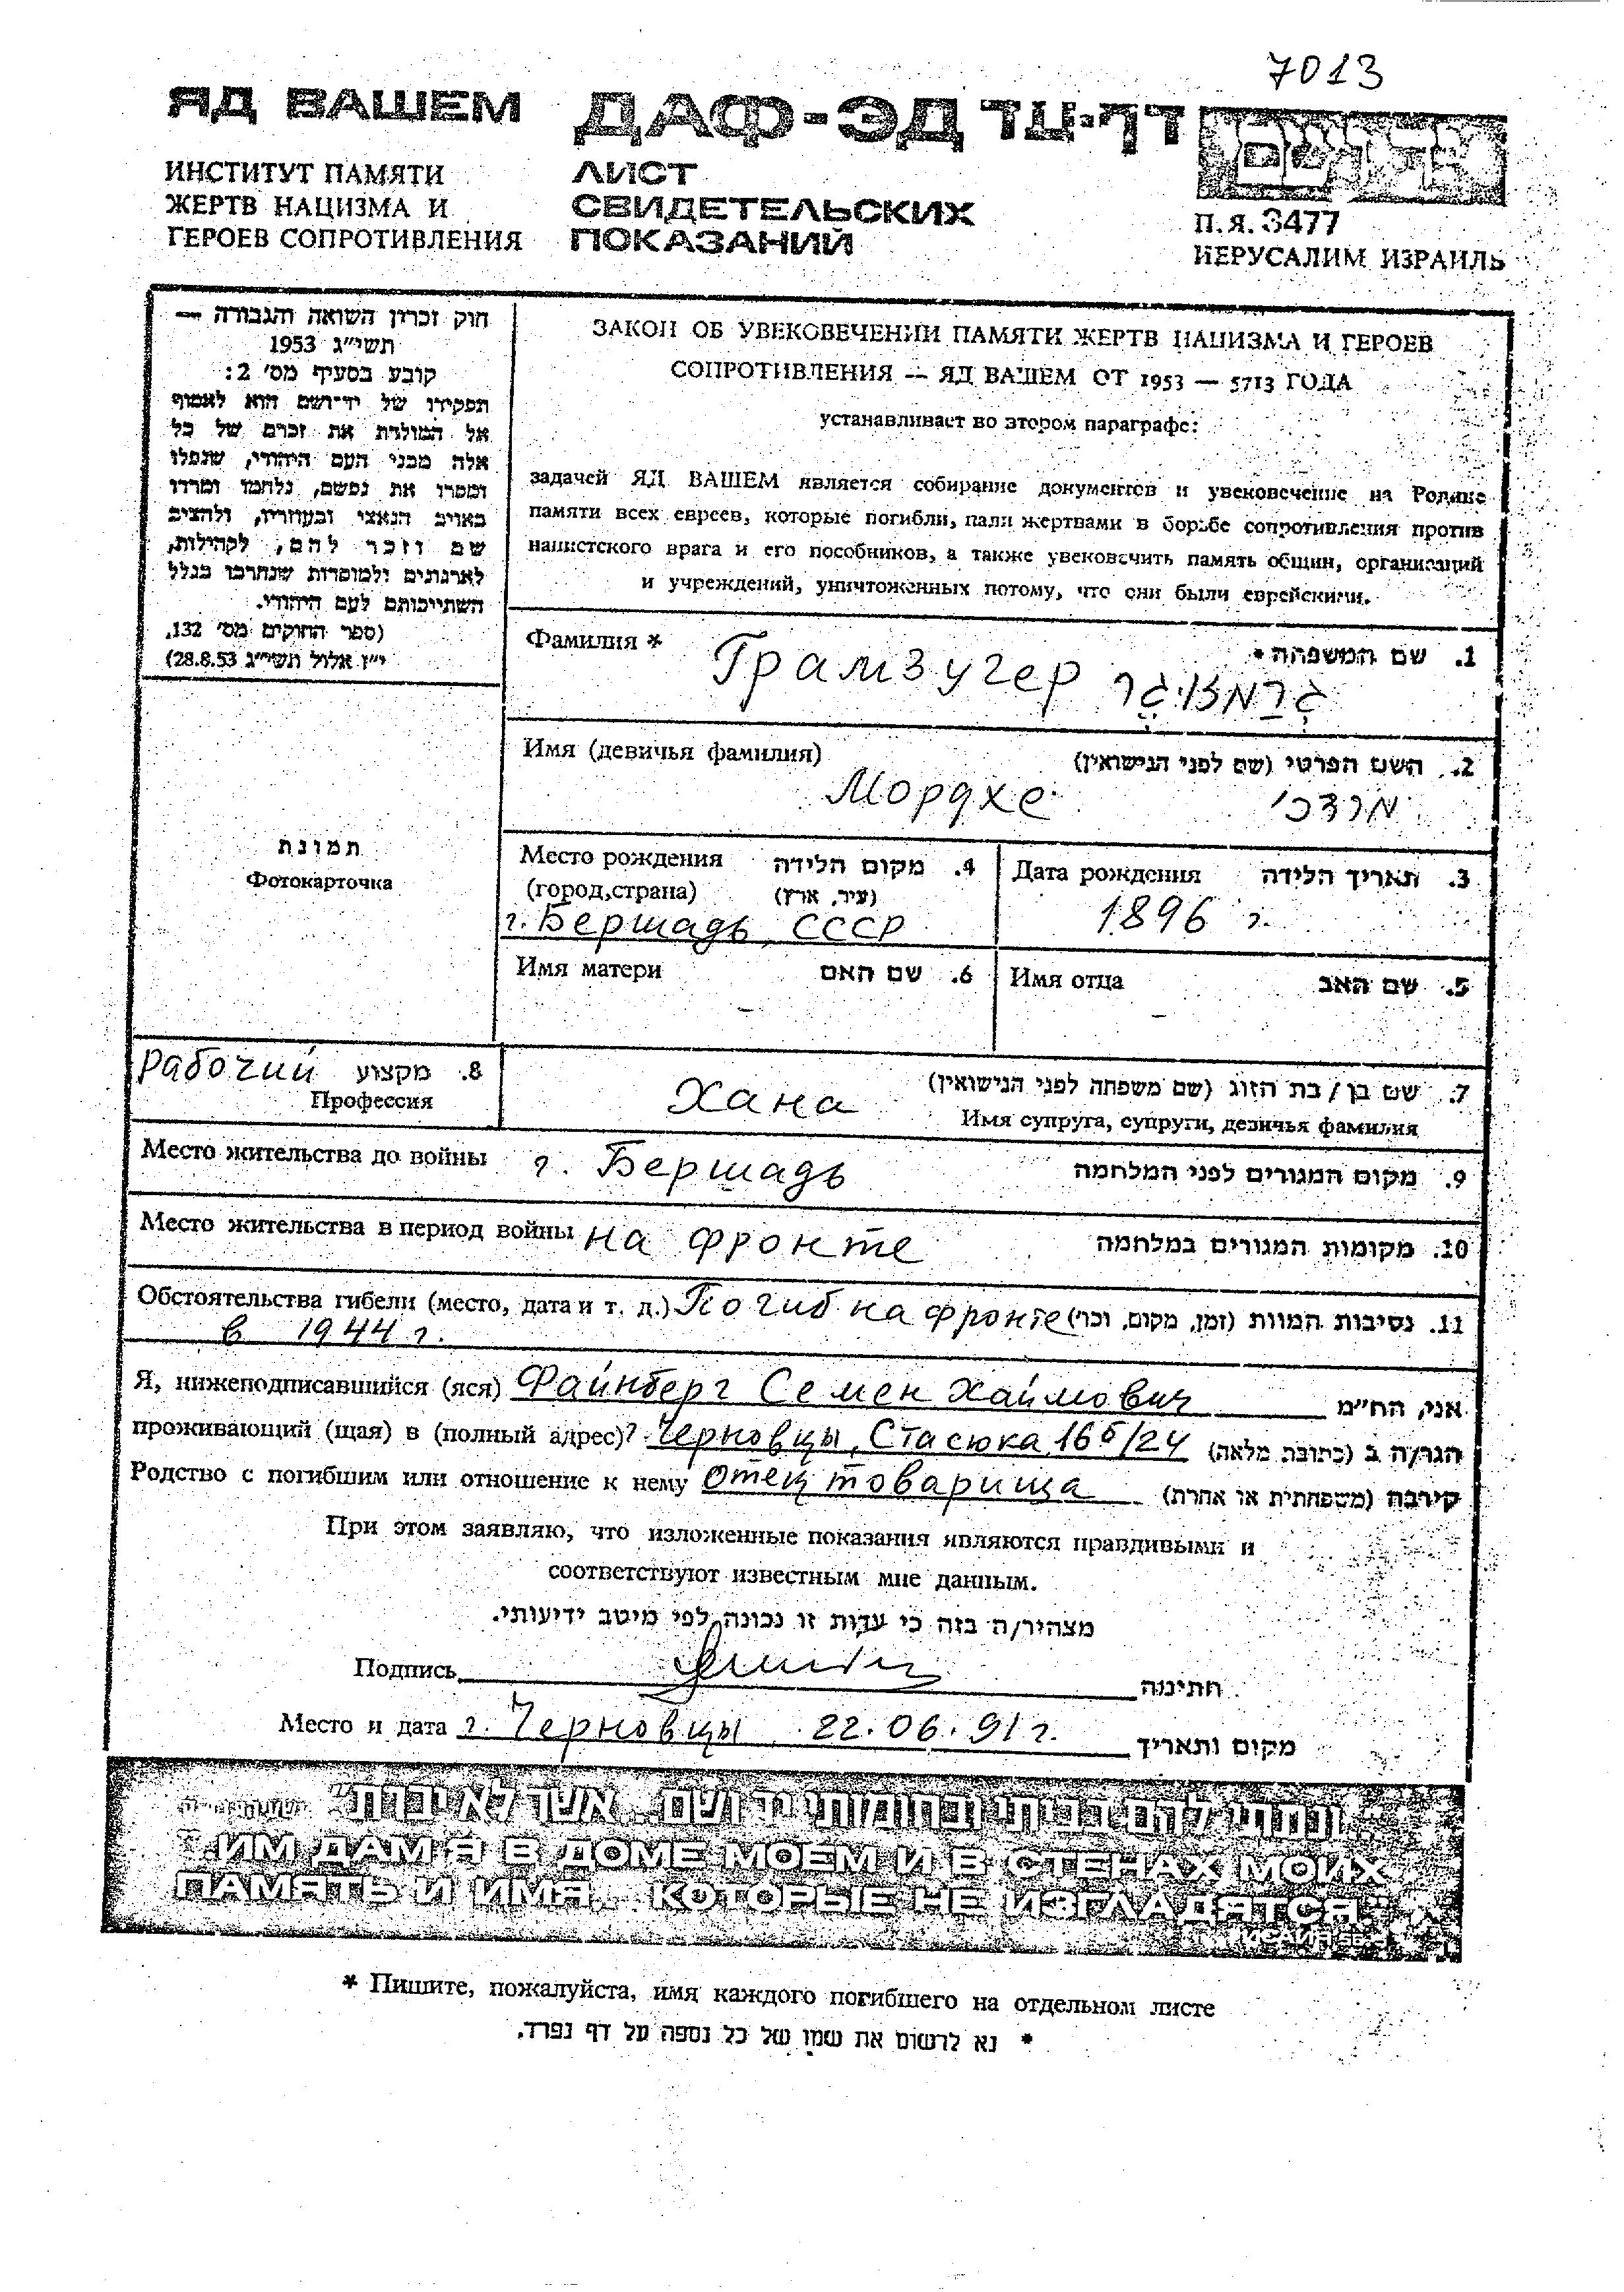 7013
ЯД ВАШЕМ ДАФ-ЭД דף-עד
ИНСТИТУТ ПАМЯТИ
ЖЕРТВ НАЦИЗМА И
ГЕРОЕВ СОПРОТИВЛЕНИЯ
ЛИСТ
СВИДЕТЕЛЬСКИХ
ПОКАЗАНИЙ
П.Я. 3477
ИЕРУСАЛИМ ИЗРАИЛЬ
חוק זכרון השואה והגבורה —
תשי״ג 1953
קובע בסעיף מס׳ 2:
תפקידו של יד־ושם הוא לאסוף
אל המולדת את זכרם של כל
אלה מבני העם היהודי, שנפלו
ומסרו את נפשם, נלחמו ומרדו
באויב הנאצי ובעוזריו, ולהציב
שם וזכר להם, לקהילות,
לארגונים ולמוסדות שנחרבו בגלל
השתייכותם לעם היהודי.
(ספר החוקים מס׳ 132,
י״ז אלול תשי״ג 28.8.53)
ЗАКОН ОБ УВЕКОВЕЧЕНИИ ПАМЯТИ ЖЕРТВ НАЦИЗМА И ГЕРОЕВ
СОПРОТИВЛЕНИЯ — ЯД ВАШЕМ ОТ 1953 — 5713 ГОДА
устанавливает во втором параграфе:
задачей ЯД ВАШЕМ является собирание документов и увековечение на Родине
памяти всех евреев, которые погибли, пали жертвами в борьбе сопротивления против
нацистского врага и его пособников, а также увековечить память общин, организаций
и учреждений, уничтоженных потому, что они были еврейскими.
Фамилия * 1. שם המשפחה *
Грамзугер גרמזוגר
Имя (девичья фамилия) 2. השם הפרטי (שם לפני הנישואין)
Мордхе מרדכי
תמונת
Фотокарточка
Место рождения 4. מקום הלידה
(город,страна) (עיר, ארץ)
г. Бершадь, СССР
Дата рождения 3. תאריך הלידה
1896 г.
Имя матери 6. שם האם
—
Имя отца 5. שם האב
—
Рабочий 8. מקצוע
Профессия
7. שם בן / בת הזוג (שם משפחה לפני הנישואין)
Хана
Имя супруга, супруги, девичья фамилия
Место жительства до войны г. Бершадь 9. מקום המגורים לפני המלחמה
Место жительства в период войны на фронте 10. מקומות המגורים במלחמה
Обстоятельства гибели (место, дата и т. д.) Погиб на фронте 11. נסיבות המוות (זמן, מקום, וכו׳)
в 1944 г.
Я, нижеподписавшийся (яся) Файнберг Семен Хаймович אני, הח״מ
проживающий (щая) в (полный адрес)? Черновцы, Стасюка 16б/24 הגר/ה ב (כתובת מלאה)
Родство с погибшим или отношение к нему Отец товарища קירבה (משפחתית או אחרת)
При этом заявляю, что изложенные показания являются правдивыми и
соответствуют известным мне данным.
מצהיר/ה בזה כי עדות זו נכונה לפי מיטב ידיעותי.
Подпись חתימה
Место и дата г. Черновцы 22.06.91 г. מקום ותאריך
״ונתתי להם בביתי ובחומותי יד ושם... אשר לא יכרת״
"...ИМ ДАМ Я В ДОМЕ МОЕМ И В СТЕНАХ МОИХ
ПАМЯТЬ И ИМЯ... КОТОРЫЕ НЕ ИЗГЛАДЯТСЯ."
* Пишите, пожалуйста, имя каждого погибшего на отдельном листе
* נא לרשום את שמו של כל נספה על דף נפרד.